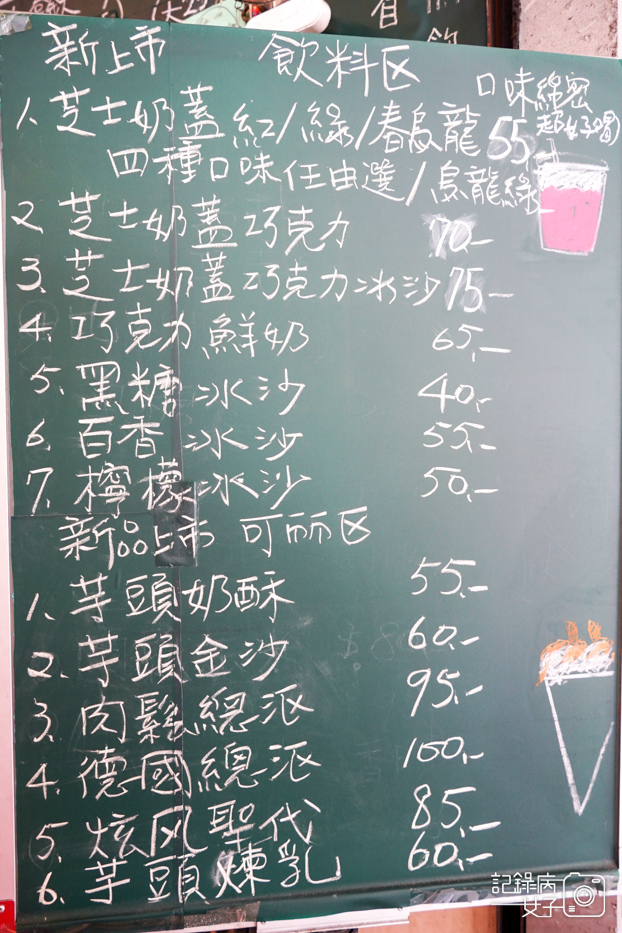 新上市 飲料区
口味綿密
超好喝
1. 芝士奶蓋 紅/綠/春烏龍 55.-
四種口味任由選/烏龍綠
2 芝士奶蓋巧克力 70.-
3. 芝士奶蓋巧克力冰沙 75-
4. 巧克力鮮奶 65.-
5. 黑糖冰沙 40.-
6. 百香冰沙 55.-
7. 檸檬冰沙 50.-
新品上市 可丽区
1. 芋頭奶酥 55.-
2. 芋頭金沙 60.-
3. 肉鬆總派 95.-
4. 德國總派 100.-
5. 炫风聖代 85.-
6. 芋頭煉乳 60.-
記錄病女子